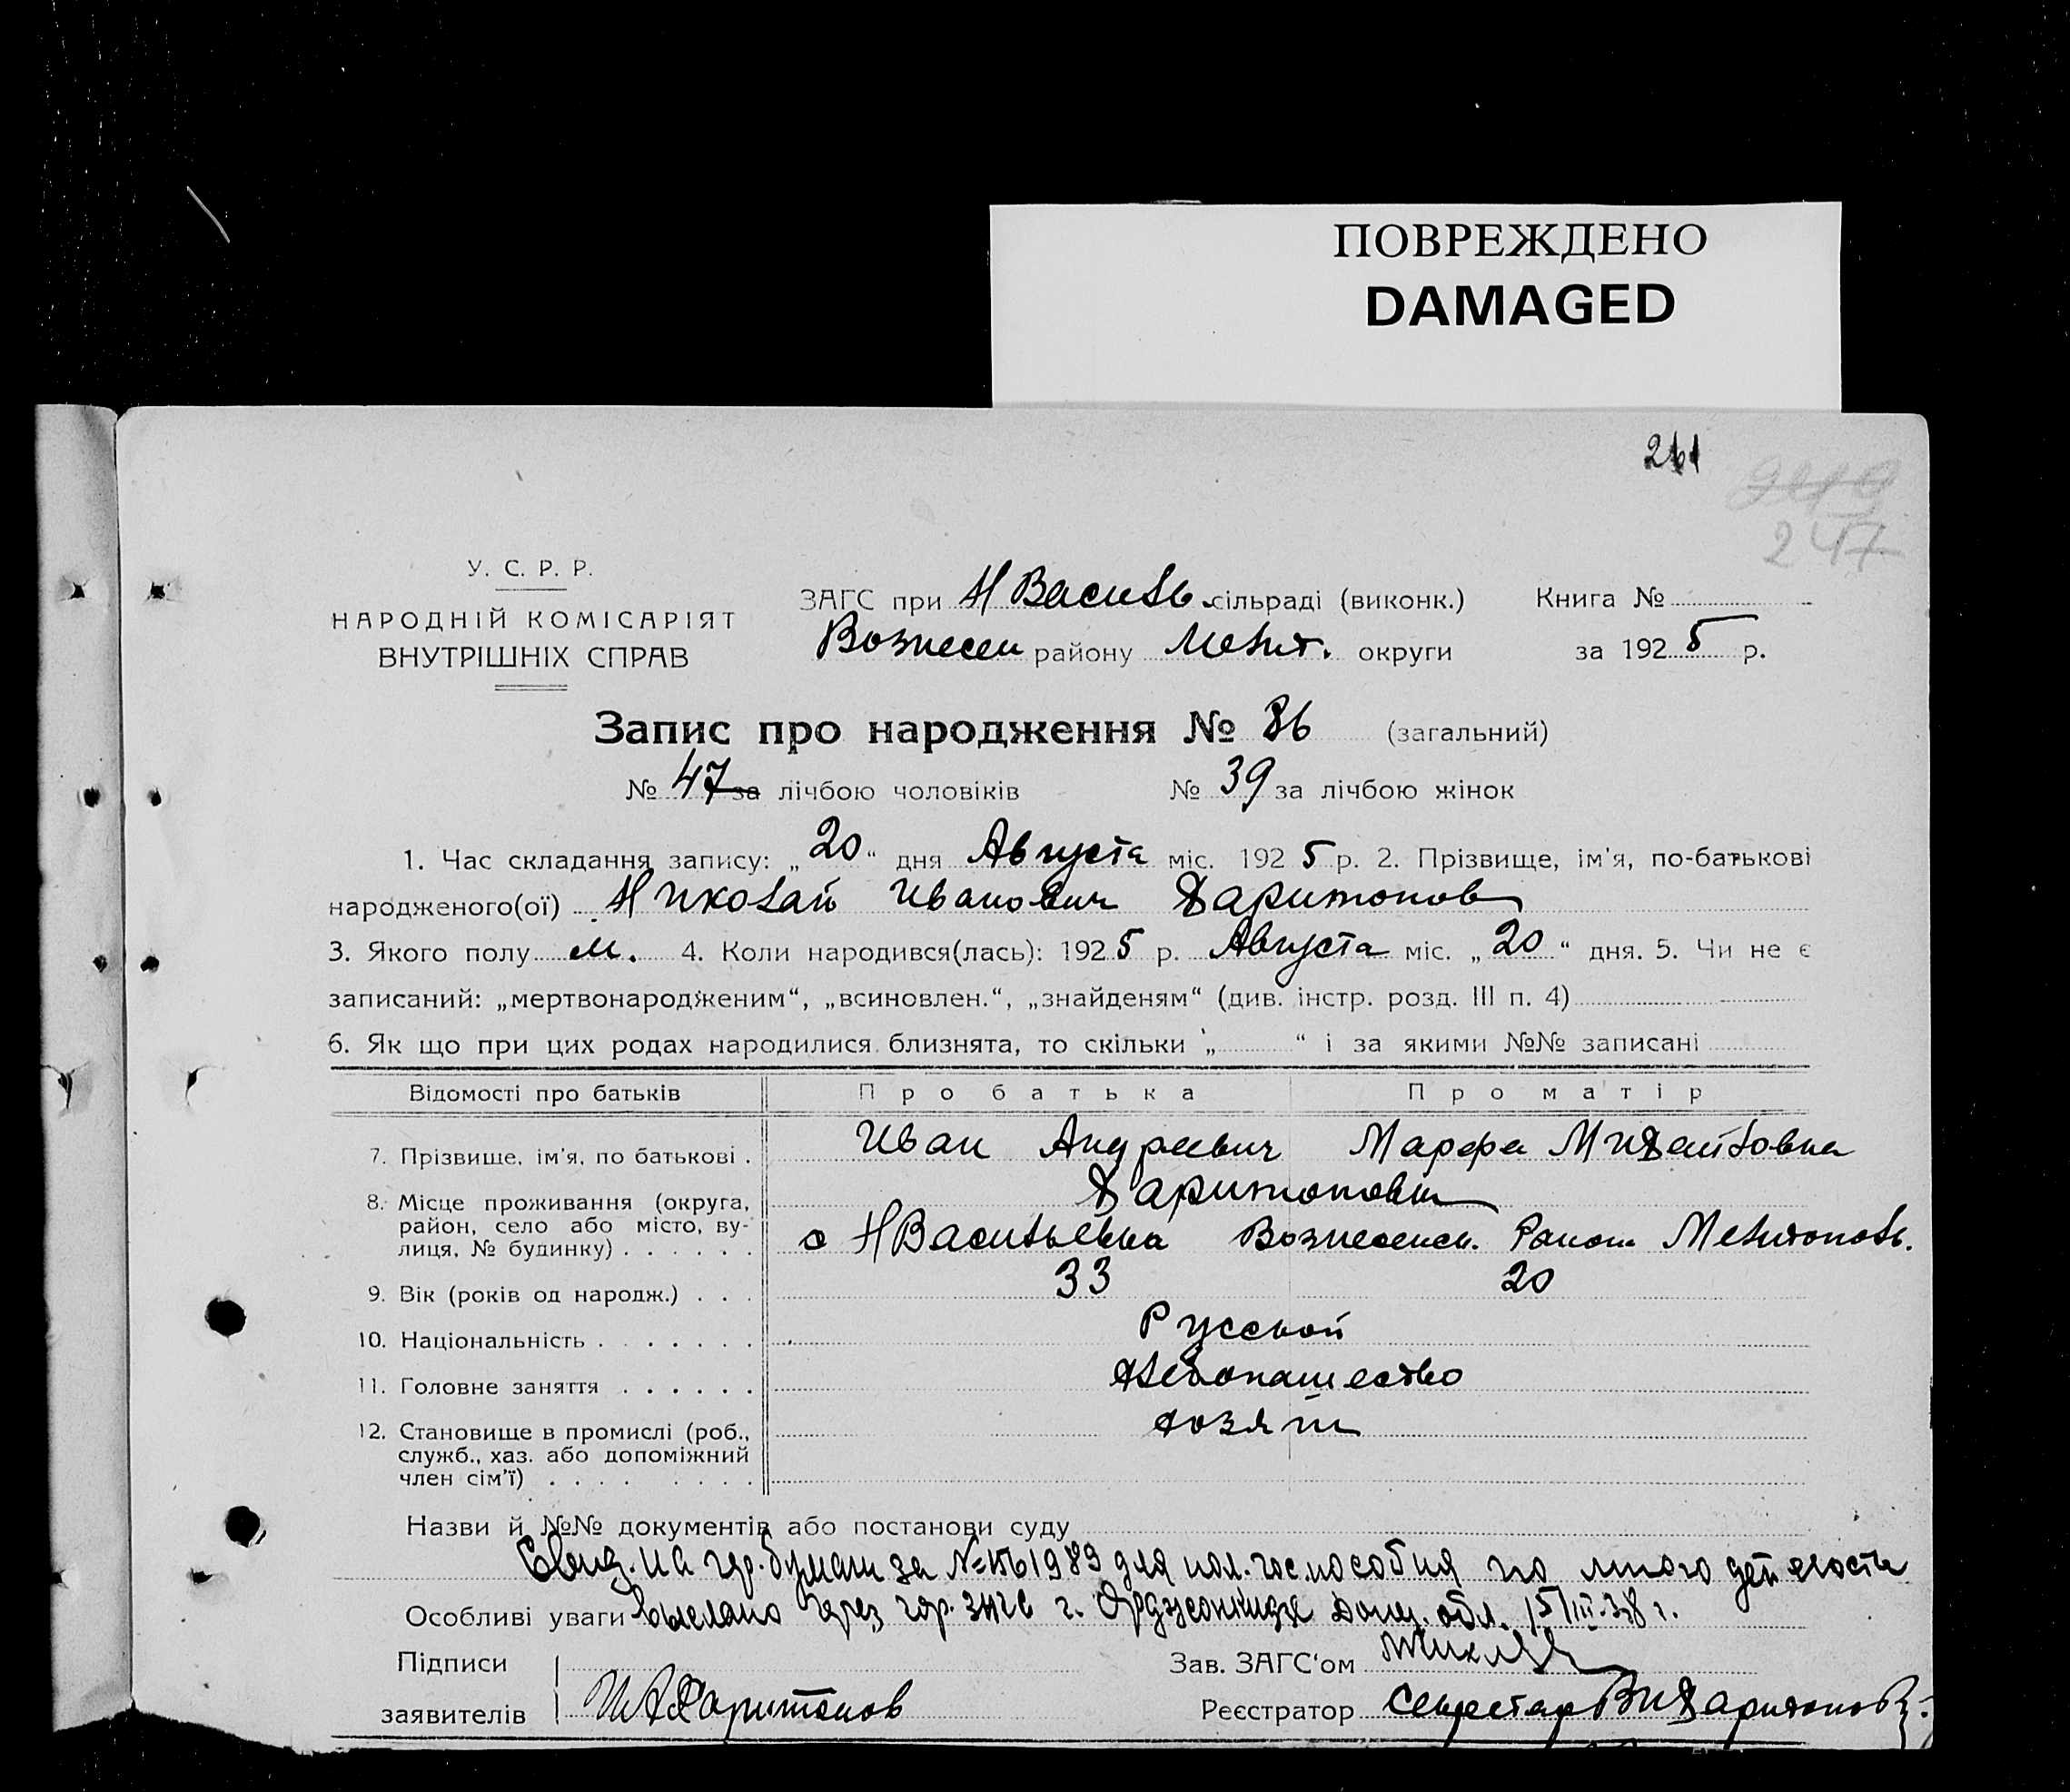 ПОВРЕЖДЕНО
DAMAGED
261
247
У. С. Р. Р.
НАРОДНІЙ КОМІСАРІЯТ
ВНУТРІШНІХ СПРАВ
ЗАГС при Н Василь сільраді (виконк.) Книга №
Вознесен району Мелит. округи за 1925 р.
Запис про народження № 86 (загальний)
№ 47 за лічбою чоловіків № 39 за лічбою жінок
1. Час складання запису: „20“ дня Августа міс. 1925 р. 2. Прізвище, ім'я, по-батькові
народженого(ої) Николай Иванович Харитонов
3. Якого полу м. 4. Коли народився(лась): 1925 р. Августа міс. „20“ дня. 5. Чи не є
записаний: „мертвонародженим“, „всиновлен.“, „знайденям“ (див. інстр. розд. III п. 4)
6. Як що при цих родах народилися близнята, то скільки „ “ і за якими №№ записані
Відомості про батьків Про батька Про матір
7. Прізвище, ім'я, по батькові . Иван Андреевич Марфа Михайловна
Харитонови
8. Місце проживання (округа,
район, село або місто, ву-
лиця, № будинку) . . . . . . с НВасильевка Вознесенск. Район Мелитополь.
9. Вік (років од народж.) . . . 33 20
10. Національність . . . . . . . Русской
11. Головне заняття . . . . . . Хлебопашество
12. Становище в промислі (роб.,
служб., хаз. або допоміжний
член сім'ї) . . . . . . . . хозяин
Назви й №№ документів або постанови суду
на гер. бумаги за № 1561989 для пол. гос. пособия по много детности
Особливі уваги Выслано через гор. ЗАГС г. Орджоникидзе Донец. обл. 15/III-38 г.
Підписи Зав. ЗАГС'ом
заявителів И А Харитонов Реєстратор Секретар ВИХаритонов